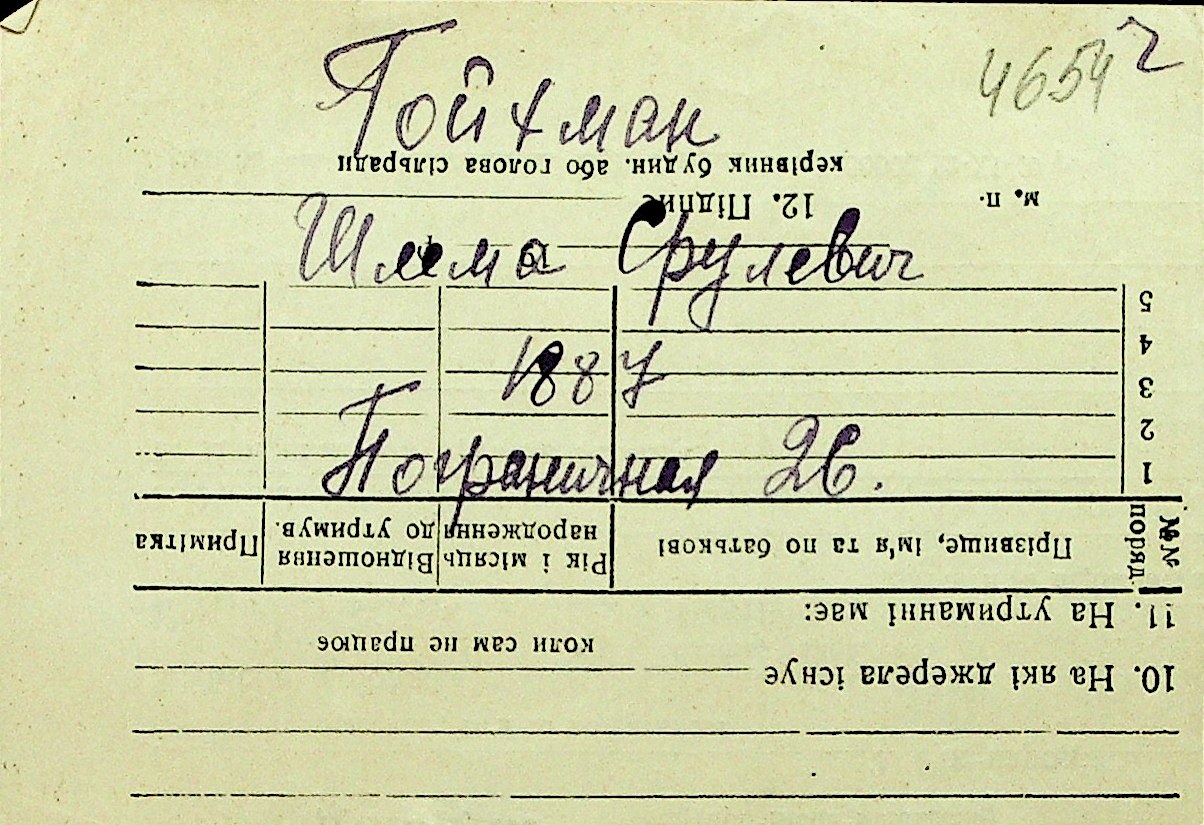 4654
Гойхман
Шлема Срулевич
1887
Пограничная 26.
10. На які джерела існує
коли сам не працює
11. На утриманні має:
№№ поряд.
Прізвище, ім'я та по батькові
Рік і місяць народження
Відношення до утримув.
Примітка
1
2
3
4
5
м. п. 12. Підпис
керівник будин. або голова сільради